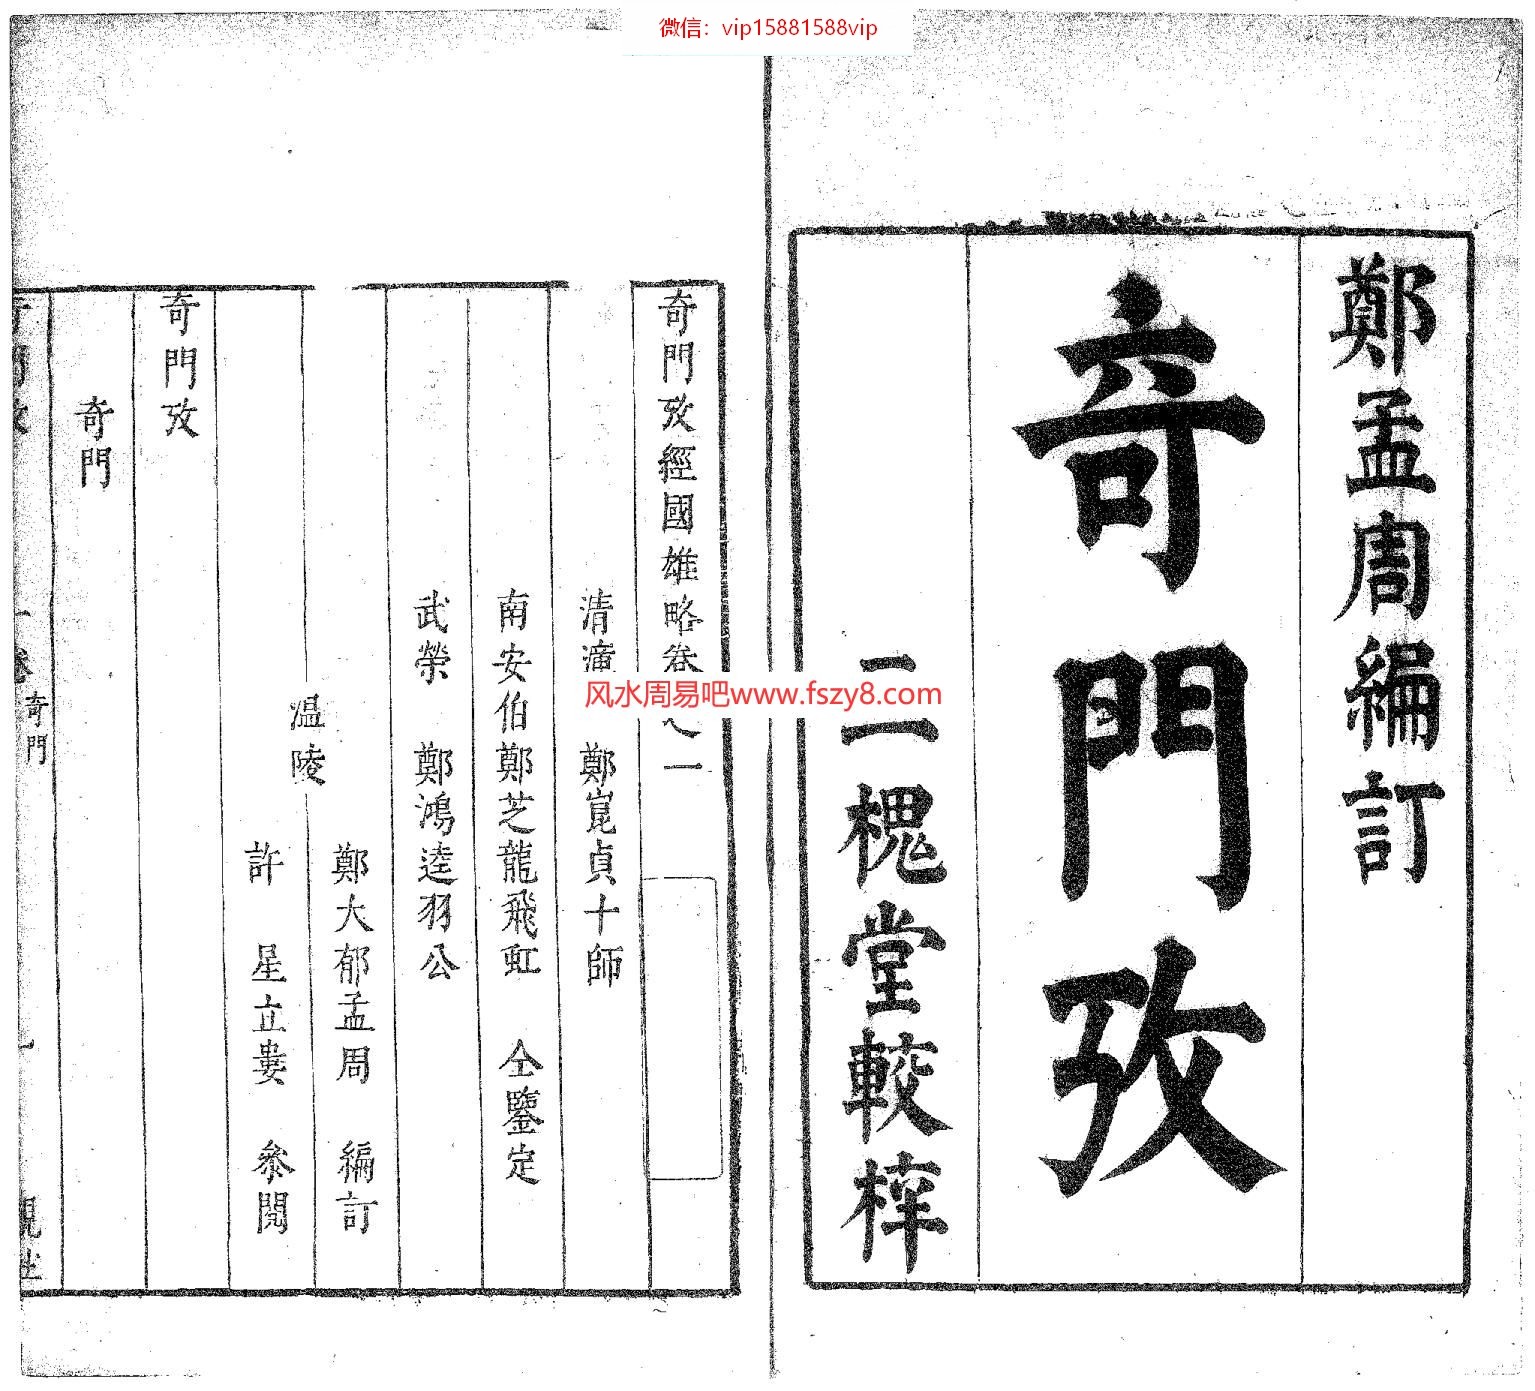 微信：vip15881588vip
鄭孟周編訂
奇門攷
二槐堂較梓
奇門攷經國雄略卷之一
清漳 鄭崑貞十師
南安伯鄭芝龍飛虹 仝鑒定
武榮 鄭鴻逵羽公
溫陵
鄭大郁孟周 編訂
許 星立婁 參閱
奇門攷
奇門
奇門攷 一卷 奇門
觀社
风水周易吧www.fszy8.com